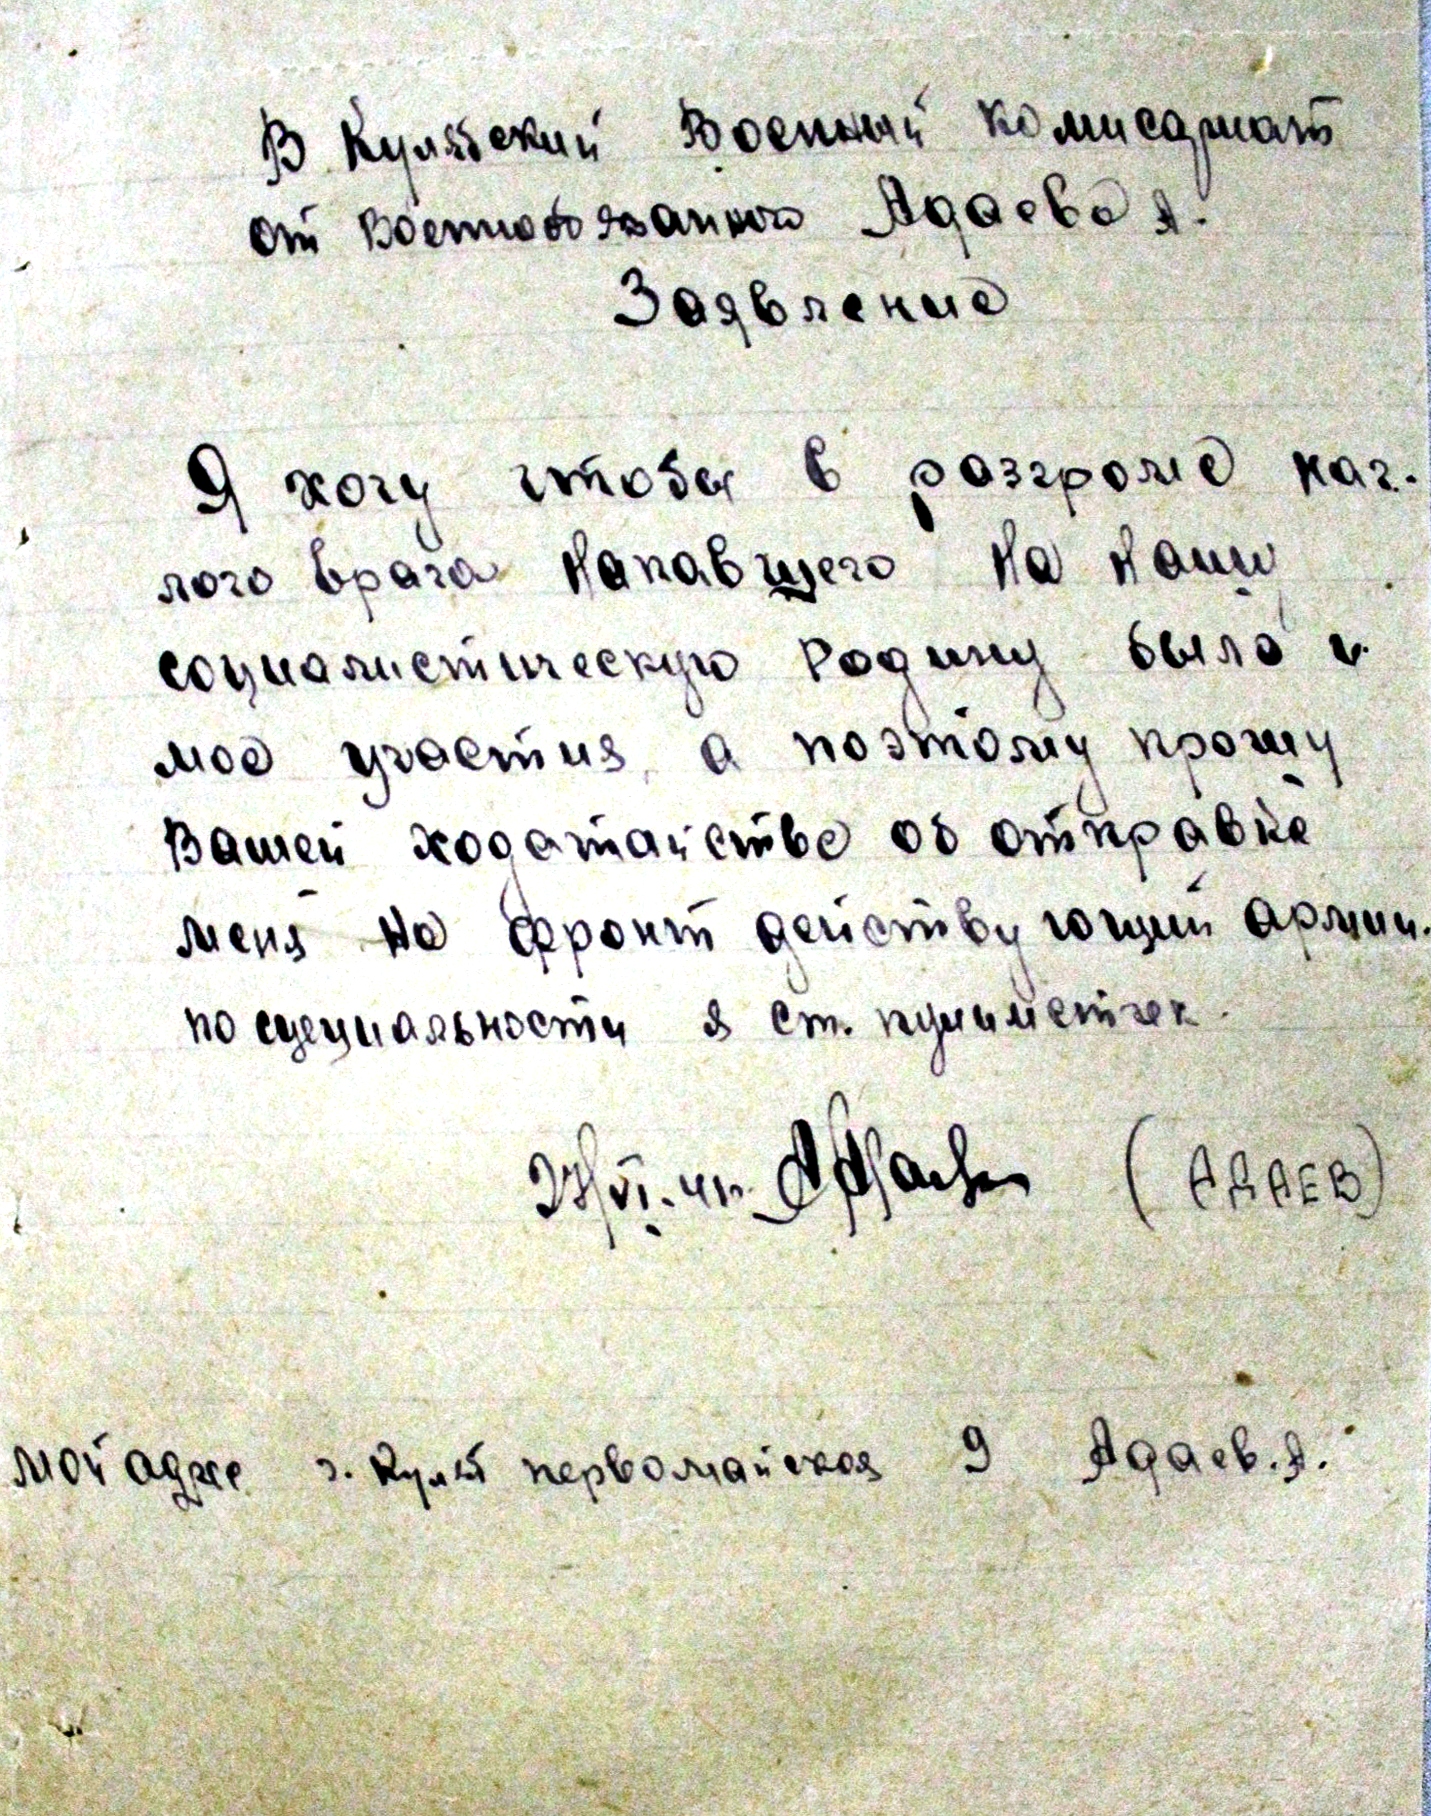 В Кулябский Военный комисариат
от Военнообязанного Адаева А.
Заявление
Я хочу чтобы в разгроме наг-
лого врага напавшего на нашу
социалистическую Родину было и
мое участия, а поэтому прошу
Вашей ходатайстве об отправке
меня на фронт действующий армии.
по специальности я ст. пулиметчек.
27/VI-41г. Адаев (АДАЕВ)
мой адрес г. Куляб первомайская 9 Адаев.А.